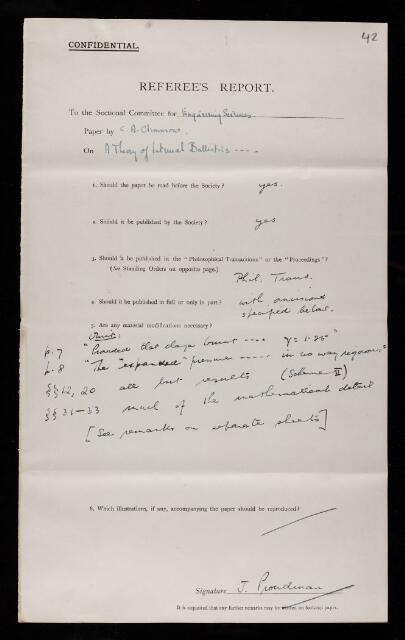 42
CONFIDENTIAL.
REFEREE'S REPORT.
To the Sectional Committee for Engineering Sciences
Paper by C. A. Clemmow.
On A Theory of Internal Ballistics ----
1. Should the paper be read before the Society? yes.
2. Should it be published by the Society? yes
3. Should it be published in the "Philosophical Transactions" or the "Proceedings"?
(See Standing Orders on opposite page.)
Phil. Trans.
4. Should it be published in full or only in part? with omissions
specified below.
5. Are any material modifications necessary?
Omit:
p. 7 "Provided that days ---- γ = 1.25"
p. 8 "The "expanded" pressure ----- in no way rigorous."
§§ 12, 20 all but results (Scheme II)
§§ 31–33 much of the mathematical detail
[See remarks on separate sheets]
6. Which illustrations, if any, accompanying the paper should be reproduced?
Signature J. Proudman
It is requested that any further remarks may be written on foolscap paper.